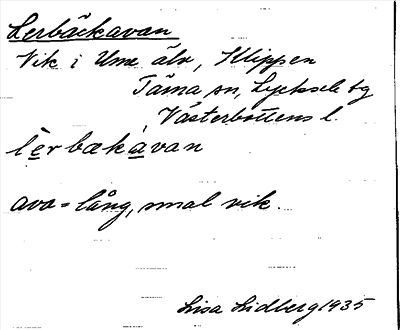 Lerbäckavan
Vik i Ume älv, Klippen
Tärna sn, Lycksele tg
Västerbottens l.
lèrbækàvan
ava = lång, smal vik.
Lisa Lidberg 1935